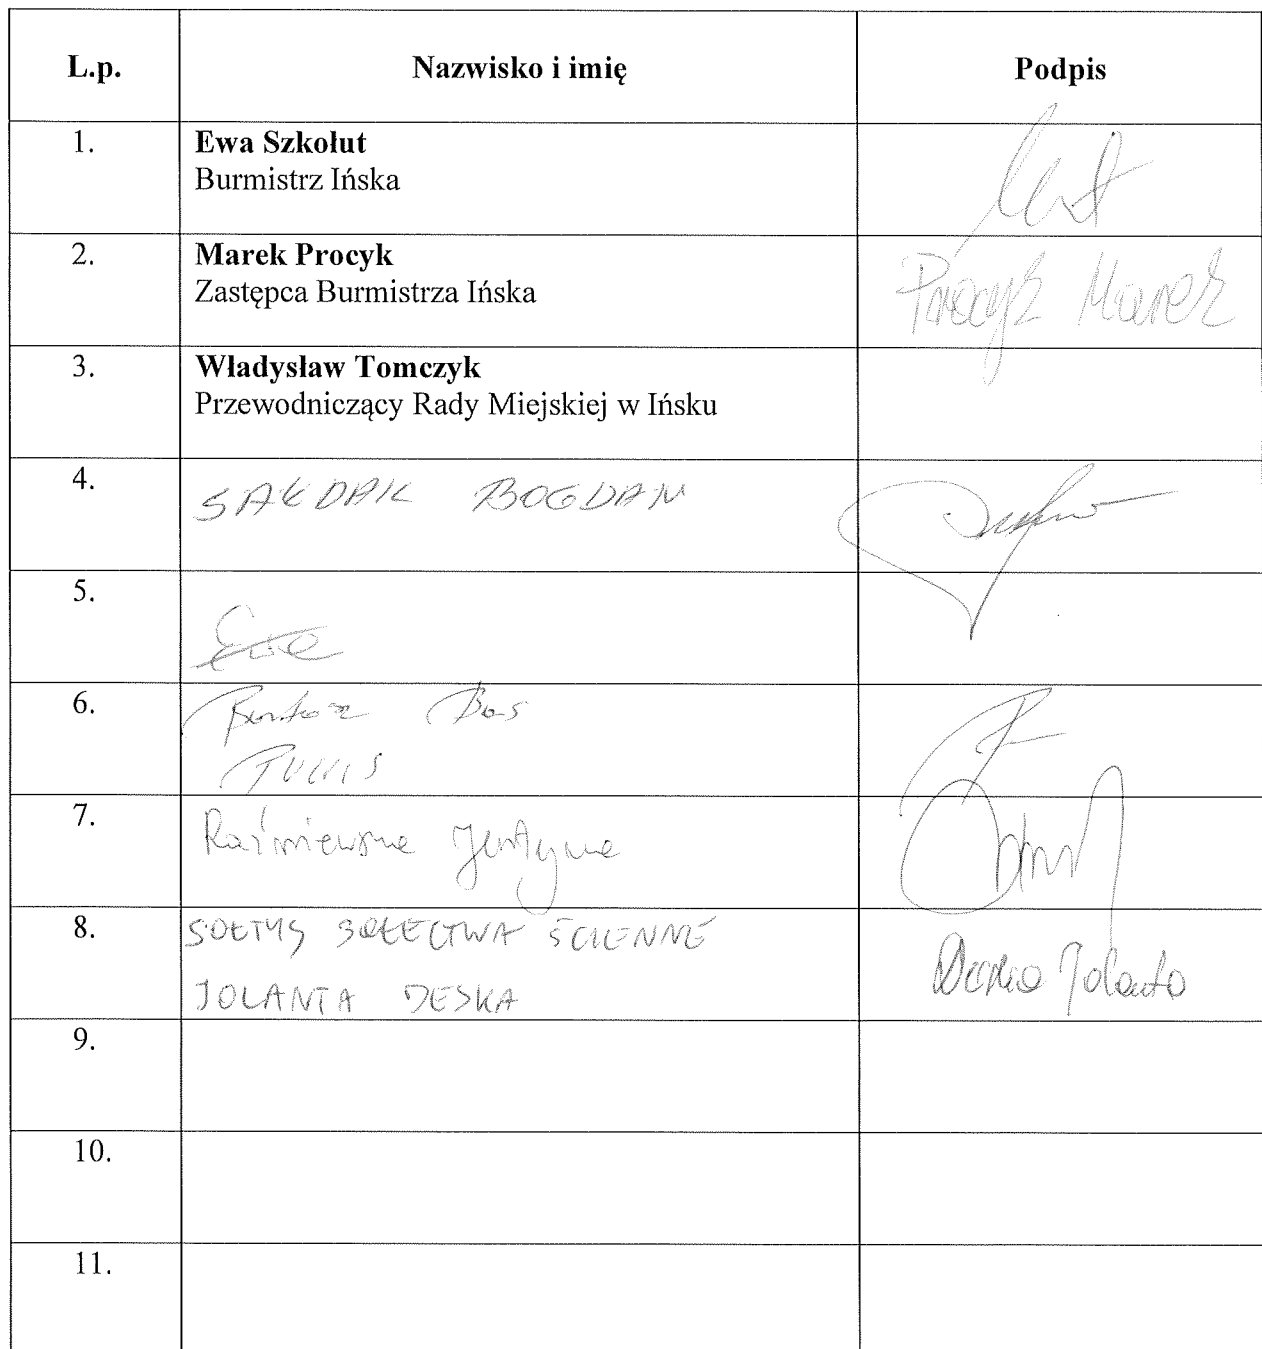 L.p. Nazwisko i imię Podpis
1. Ewa Szkołut
Burmistrz Ińska
2. Marek Procyk Procyk Marek
Zastępca Burmistrza Ińska
3. Władysław Tomczyk
Przewodniczący Rady Miejskiej w Ińsku
4. SAŁDAK BOGDAN
5. Ewa
6. Bartosz Bas
7. Justyna
8. SOŁTYS SOŁECTWA ŚCIENNE
JOLANTA DESKA Deska Jolanta
9.
10.
11.